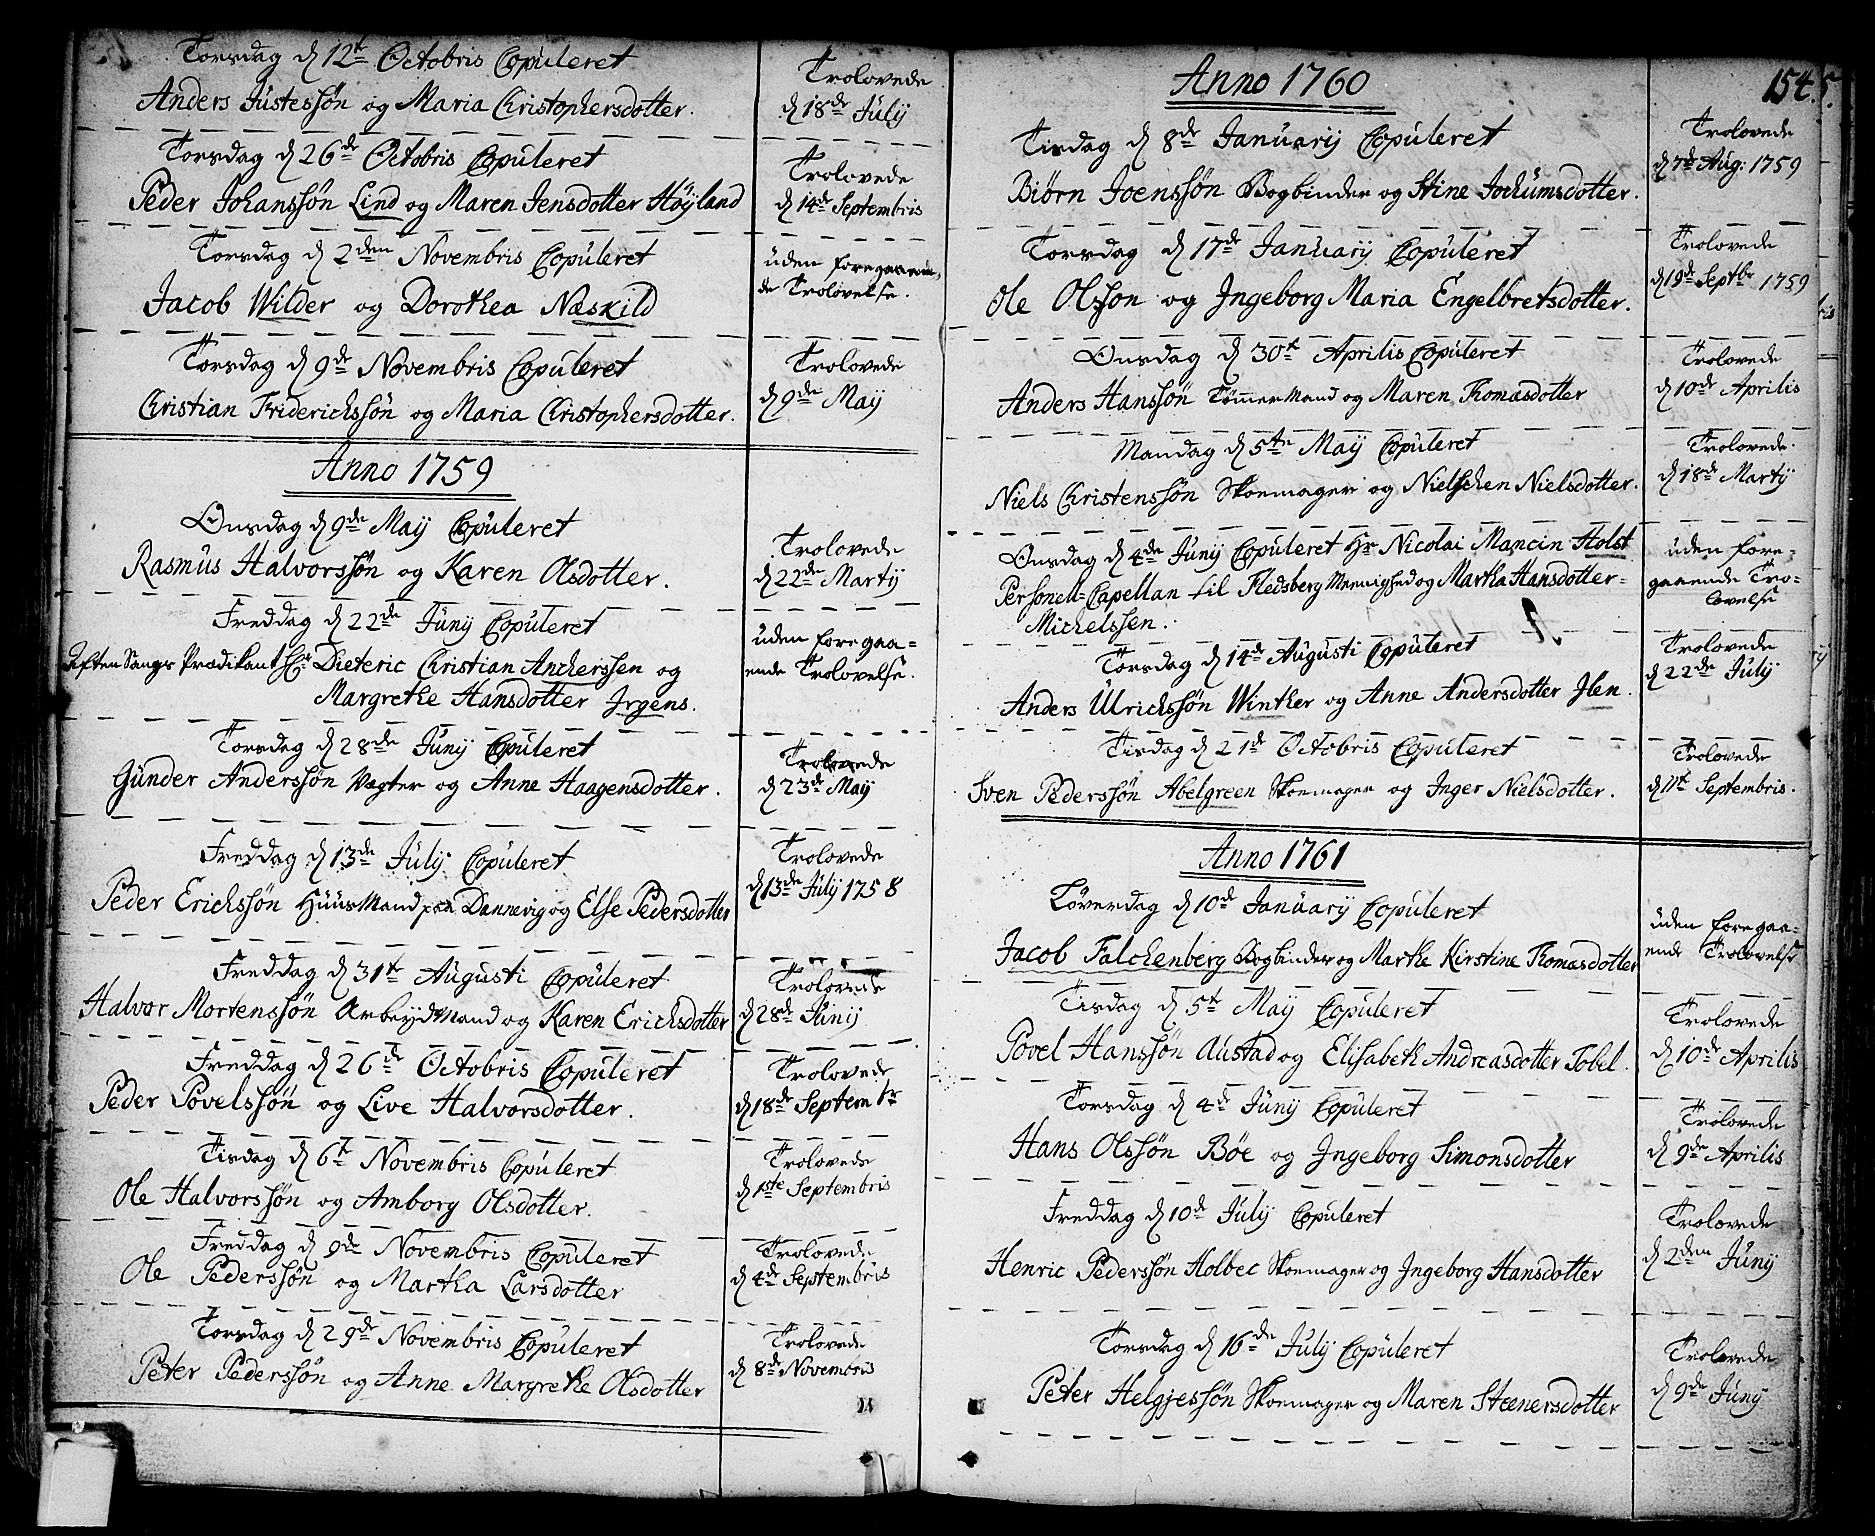 Torsdag d 12te Octobris Copuleret
Anders Justessøn og Maria Christophersdotter.
Trolovede
d 18de July
Torsdag d 26de Octobris Copuleret
Peder Johanssøn Lind og Maren Jensdotter Høyland
Trolovede
d 14de Septembris
Torsdag d 2den Novembris Copuleret
Jacob Wilder og Dorothea Næskild
uden foregaaen-
de Trolovelse.
Torsdag d 9de Novembris Copuleret
Christian Friderichssøn og Maria Christophersdotter.
Trolovede
d 9de May
Anno 1759
Onsdag d 9de May Copuleret
Rasmus Halvorssøn og Karen Olsdotter.
Trolovede
d 22de Martÿ
Freddag d 22de Junÿ Copuleret
Aften Sangs Prædikant Hr Dieteric Christian Ancherssen og
Margrethe Hansdotter Jrgens.
uden foregaa-
ende Trolovelse.
Torsdag d 28de Junÿ Copuleret
Gunder Anderssøn Vægter og Anne Haagensdotter.
Trolovede
d 23de May
Freddag d 13de Julÿ Copuleret
Peder Erichssøn Huusmand paa Dannevig og Else Pedersdotter
Trolovede
d 13de Julÿ 1758
Freddag d 31te Augusti Copuleret
Halvor Mortenssøn Arbeydsmand og Karen Erichsdotter
Trolovede
d 28de Junÿ
Freddag d 26de Octobris Copuleret
Peder Povelssøn og Live Halvorsdotter.
Trolovede
d 18de Septembr
Tisdag d 6te Novembris Copuleret
Ole Halvorssøn og Amborg Olsdotter.
Trolovede
d 1ste Septembris
Freddag d 9de Novembris Copuleret
Ole Pederssøn og Martha Larsdotter
Trolovede
d 4de Septembris
Torsdag d 29de Novembris Copuleret
Peter Pederssøn og Anne Margrethe Olsdotter
Trolovede
d 8de Novembris
154.
Anno 1760
Tisdag d 8de Januarÿ Copuleret
Biørn Joenssøn Bogbinder og Stine Jochumsdotter.
Trolovede
d 7de Aug: 1759
Torsdag d 17de Januarÿ Copuleret
Ole Olsson og Jngeborg Maria Engelbretsdotter.
Trolovede
d 19de Septbr 1759
Onsdag d 30te Aprilis Copuleret
Anders Hanssøn Tømmermand og Maren Thomasdotter
Trolovede
d 10de Aprilis
Mandag d 5te Maÿ Copuleret
Niels Christenssøn Skoemager og Nielschen Nielsdotter.
Trolovede.
d 18de Martÿ
Onsdag d 4de Junÿ Copuleret Hr Nicolai Mancin Holst
Personel-Capellan til Flesberg Meenighed og Martha Hansdotter-
Michelssen.
uden fore-
gaaende Tro-
lovelse
Torsdag d 14de Augusti Copuleret
Anders Ulrichssøn Winther og Anne Andersdotter Jlen.
Trolovede
d 22de Julÿ
Tisdag d 21de Octobris Copuleret
Sven Pederssøn Abelgreen Skoemager og Jnger Nielsdotter.
Trolovede
d 11te Septembris.
Anno 1761
Løverdag d 10de Januarÿ Copuleret
Jacob Falchenberg Bogbinder og Marthe Kirstine Thomasdotter
uden foregaa-
ende Trolovelse
Tisdag d 5te Maÿ Copuleret
Povel Hanssøn Austad og Elisabeth Andreasdotter Tobel.
Trolovede
d 10de Aprilis
Torsdag d 4de Junÿ Copuleret
Hans Olssøn Bøe og Jngeborg Simonsdotter
Trolovede
d 9de Aprilis
Freddag d 10de Julÿ Copuleret
Henric Pederssøn Holbec Skoemager og Jngeborg Hansdotter
Trolovede
d 2den Junÿ
Torsdag d 16de Julÿ Copuleret
Peter Helgjessøn Skoemager og Maren Steenersdotter
Trolovede
d 9de Junÿ